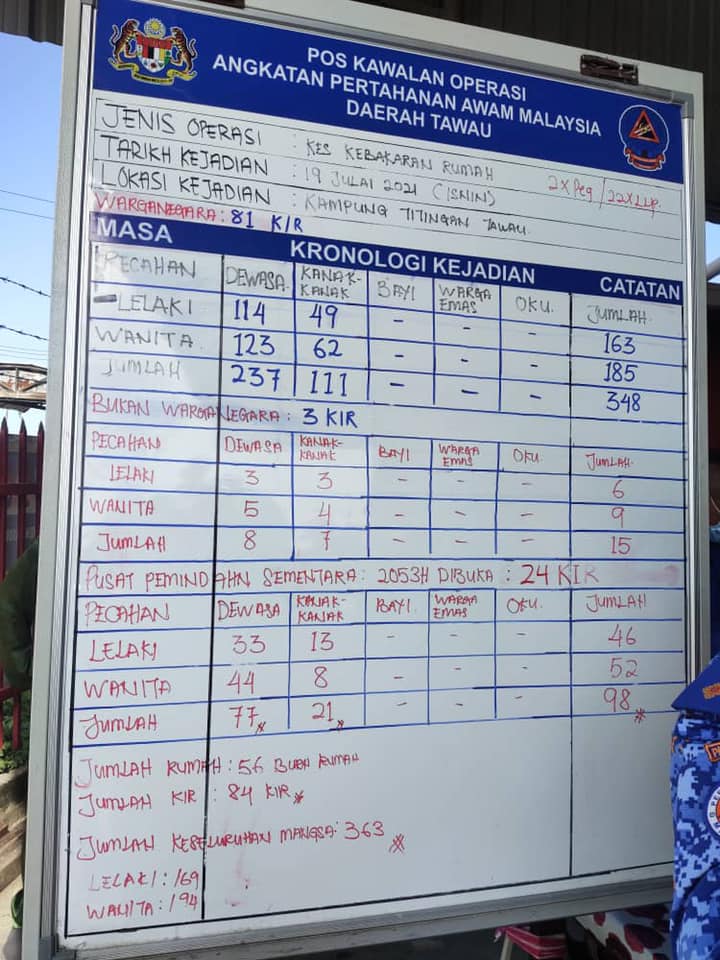 POS KAWALAN OPERASI
ANGKATAN PERTAHANAN AWAM MALAYSIA
DAERAH TAWAU
JENIS OPERASI : KES KEBAKARAN RUMAH 2 x Peg / 22 x LLP.
TARIKH KEJADIAN : 19 JULAI 2021 (ISNIN)
LOKASI KEJADIAN : KAMPUNG TITINGAN TAWAU.
WARGANEGARA : 81 KIR
MASA KRONOLOGI KEJADIAN CATATAN
PECAHAN DEWASA. KANAK-KANAK BAYI WARGA EMAS OKU. JUMLAH.
LELAKI 114 49 - - - 163
WANITA. 123 62 - - - 185
JUMLAH 237 111 - - - 348
BUKAN WARGANEGARA : 3 KIR
PECAHAN DEWASA KANAK-KANAK BAYI WARGA EMAS OKU. JUMLAH.
LELAKI 3 3 - - - 6
WANITA 5 4 - - - 9
JUMLAH 8 7 - - - 15
PUSAT PEMINDAHN SEMENTARA : 2053H DIBUKA : 24 KIR
PECAHAN DEWASA KANAK-KANAK BAYI WARGA EMAS OKU. JUMLAH
LELAKI 33 13 - - - 46
WANITA 44 8 - - - 52
JUMLAH 77 21 - - - 98
JUMLAH RUMAH : 56 BUAH RUMAH
JUMLAH KIR : 84 KIR
JUMLAH KESELURUHAN MANGSA : 363
LELAKI : 169
WANITA : 194